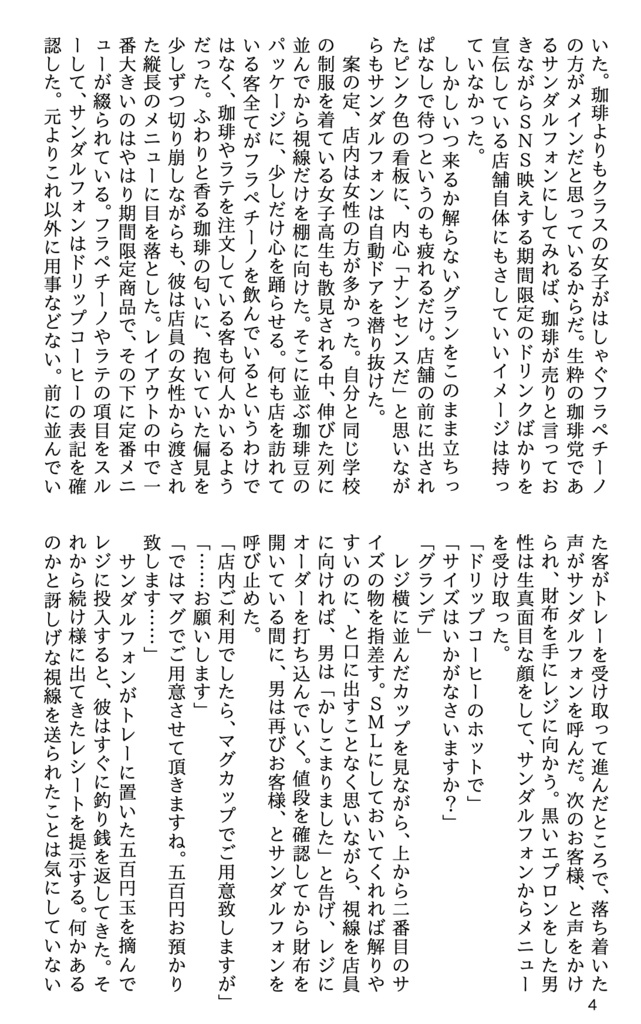 いた。珈琲よりもクラスの女子がはしゃぐフラペチーノ
の方がメインだと思っているからだ。生粋の珈琲党であ
るサンダルフォンにしてみれば、珈琲が売りと言ってお
きながらSNS映えする期間限定のドリンクばかりを
宣伝している店舗自体にもさしていいイメージは持っ
ていなかった。
しかしいつ来るか解らないグランをこのまま立ちっ
ぱなしで待つというのも疲れるだけ。店舗の前に出され
たピンク色の看板に、内心「ナンセンスだ」と思いなが
らもサンダルフォンは自動ドアを潜り抜けた。
案の定、店内は女性の方が多かった。自分と同じ学校
の制服を着ている女子高生も散見される中、伸びた列に
並んでから視線だけを棚に向けた。そこに並ぶ珈琲豆の
パッケージに、少しだけ心を踊らせる。何も店を訪れて
いる客全てがフラペチーノを飲んでいるというわけで
はなく、珈琲やラテを注文している客も何人かいるよう
だった。ふわりと香る珈琲の匂いに、抱いていた偏見を
少しずつ切り崩しながらも、彼は店員の女性から渡され
た縦長のメニューに目を落とした。レイアウトの中で一
番大きいのはやはり期間限定商品で、その下に定番メニ
ューが綴られている。フラペチーノやラテの項目をスル
ーして、サンダルフォンはドリップコーヒーの表記を確
認した。元よりこれ以外に用事などない。前に並んでい
た客がトレーを受け取って進んだところで、落ち着いた
声がサンダルフォンを呼んだ。次のお客様、と声をかけ
られ、財布を手にレジに向かう。黒いエプロンをした男
性は生真面目な顔をして、サンダルフォンからメニュー
を受け取った。
「ドリップコーヒーのホットで」
「サイズはいかがなさいますか？」
「グランデ」
レジ横に並んだカップを見ながら、上から二番目のサ
イズの物を指差す。SMLにしておいてくれれば解りや
すいのに、と口に出すことなく思いながら、視線を店員
に向ければ、男は「かしこまりました」と告げ、レジに
オーダーを打ち込んでいく。値段を確認してから財布を
開いている間に、男は再びお客様、とサンダルフォンを
呼び止めた。
「店内ご利用でしたら、マグカップでご用意致しますが」
「……お願いします」
「ではマグでご用意させて頂きますね。五百円お預かり
致します……」
サンダルフォンがトレーに置いた五百円玉を摘んで
レジに投入すると、彼はすぐに釣り銭を返してきた。そ
れから続け様に出てきたレシートを提示する。何かある
のかと訝しげな視線を送られたことは気にしていない
4